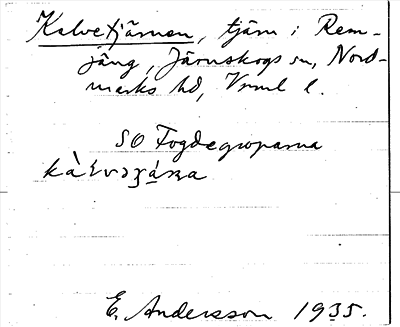 Kalvetjärnen, tjärn i Rem-
jäng, Järnskogs sn, Nord-
marks hd, Vrml l.
SO Fogdegroparna
E. Andersson 1935.